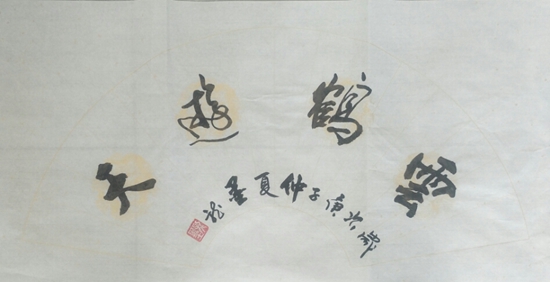 雲鶴遊天
歲次庚子仲夏墨龍